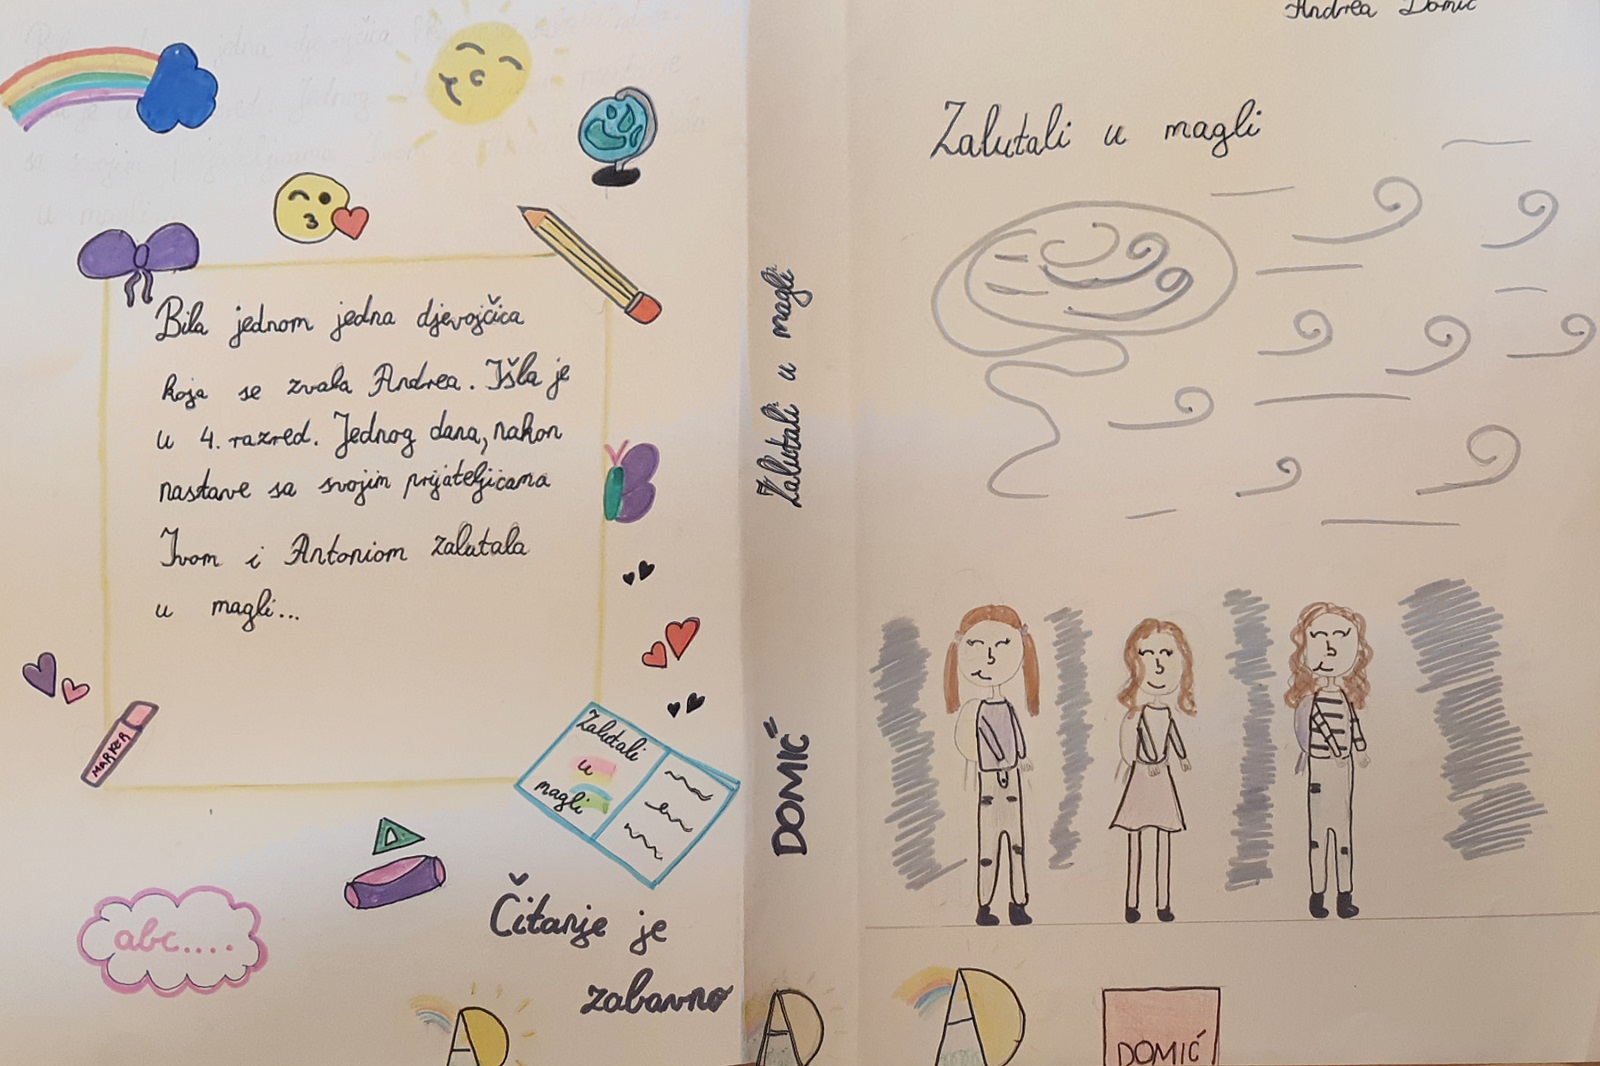 Bila jednom jedna djevojčica
koja se zvala Andrea. Išla je
u 4. razred. Jednog dana, nakon
nastave sa svojim prijateljicama
Ivom i Antoniom zalutala
u magli...
MARKER
Zalutali
u
magli
abc....
Čitanje je
zabavno
AD
Zalutali u magli
DOMIĆ
AD
Andrea Domić
Zalutali u magli
AD
DOMIĆ